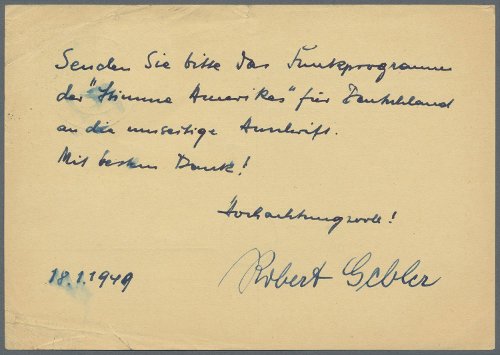 Senden Sie bitte das Funkprogramm
der "Stimme Amerikas" für Deutschland
an die umseitige Anschrift.
Mit bestem Dank!
Hochachtungsvoll!
18.1.1949 Robert Gebler